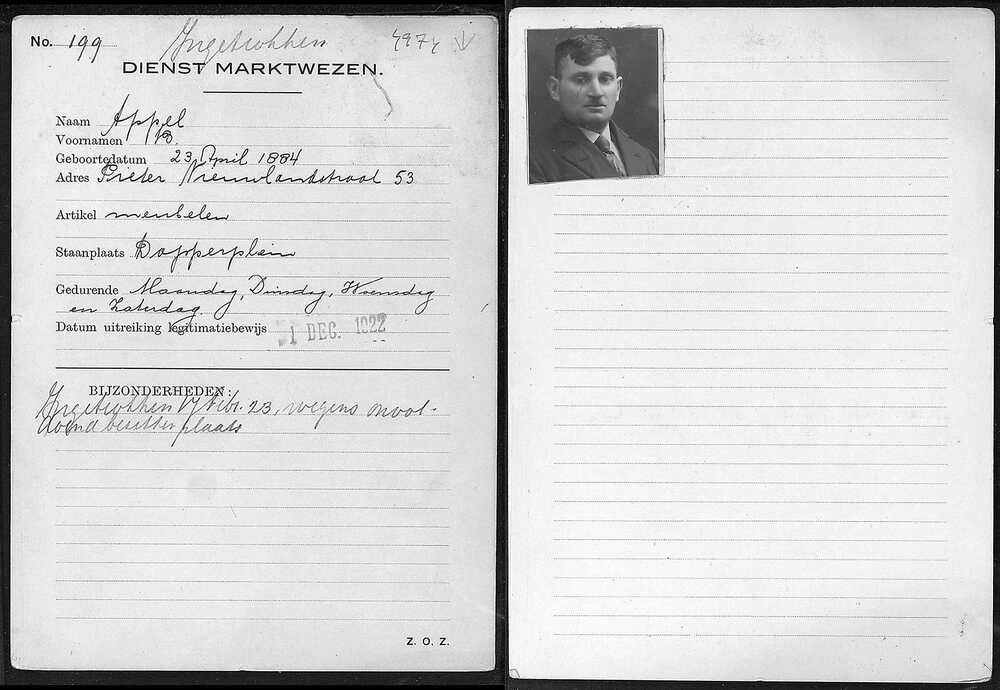 No. 199 Ingetrokken 497
DIENST MARKTWEZEN.
Naam Appel
Voornamen B.
Geboortedatum 23 April 1884
Adres Pieter Nieuwlandstraat 53
Artikel meubelen
Staanplaats Dapperplein
Gedurende Maandag, Dinsdag, Woensdag
en Zaterdag.
Datum uitreiking legitimatiebewijs 1 DEC. 1922
BIJZONDERHEDEN:
Ingetrokken 17 Febr. 23, wegens onvol-
doend bezetten plaats
Z. O. Z.